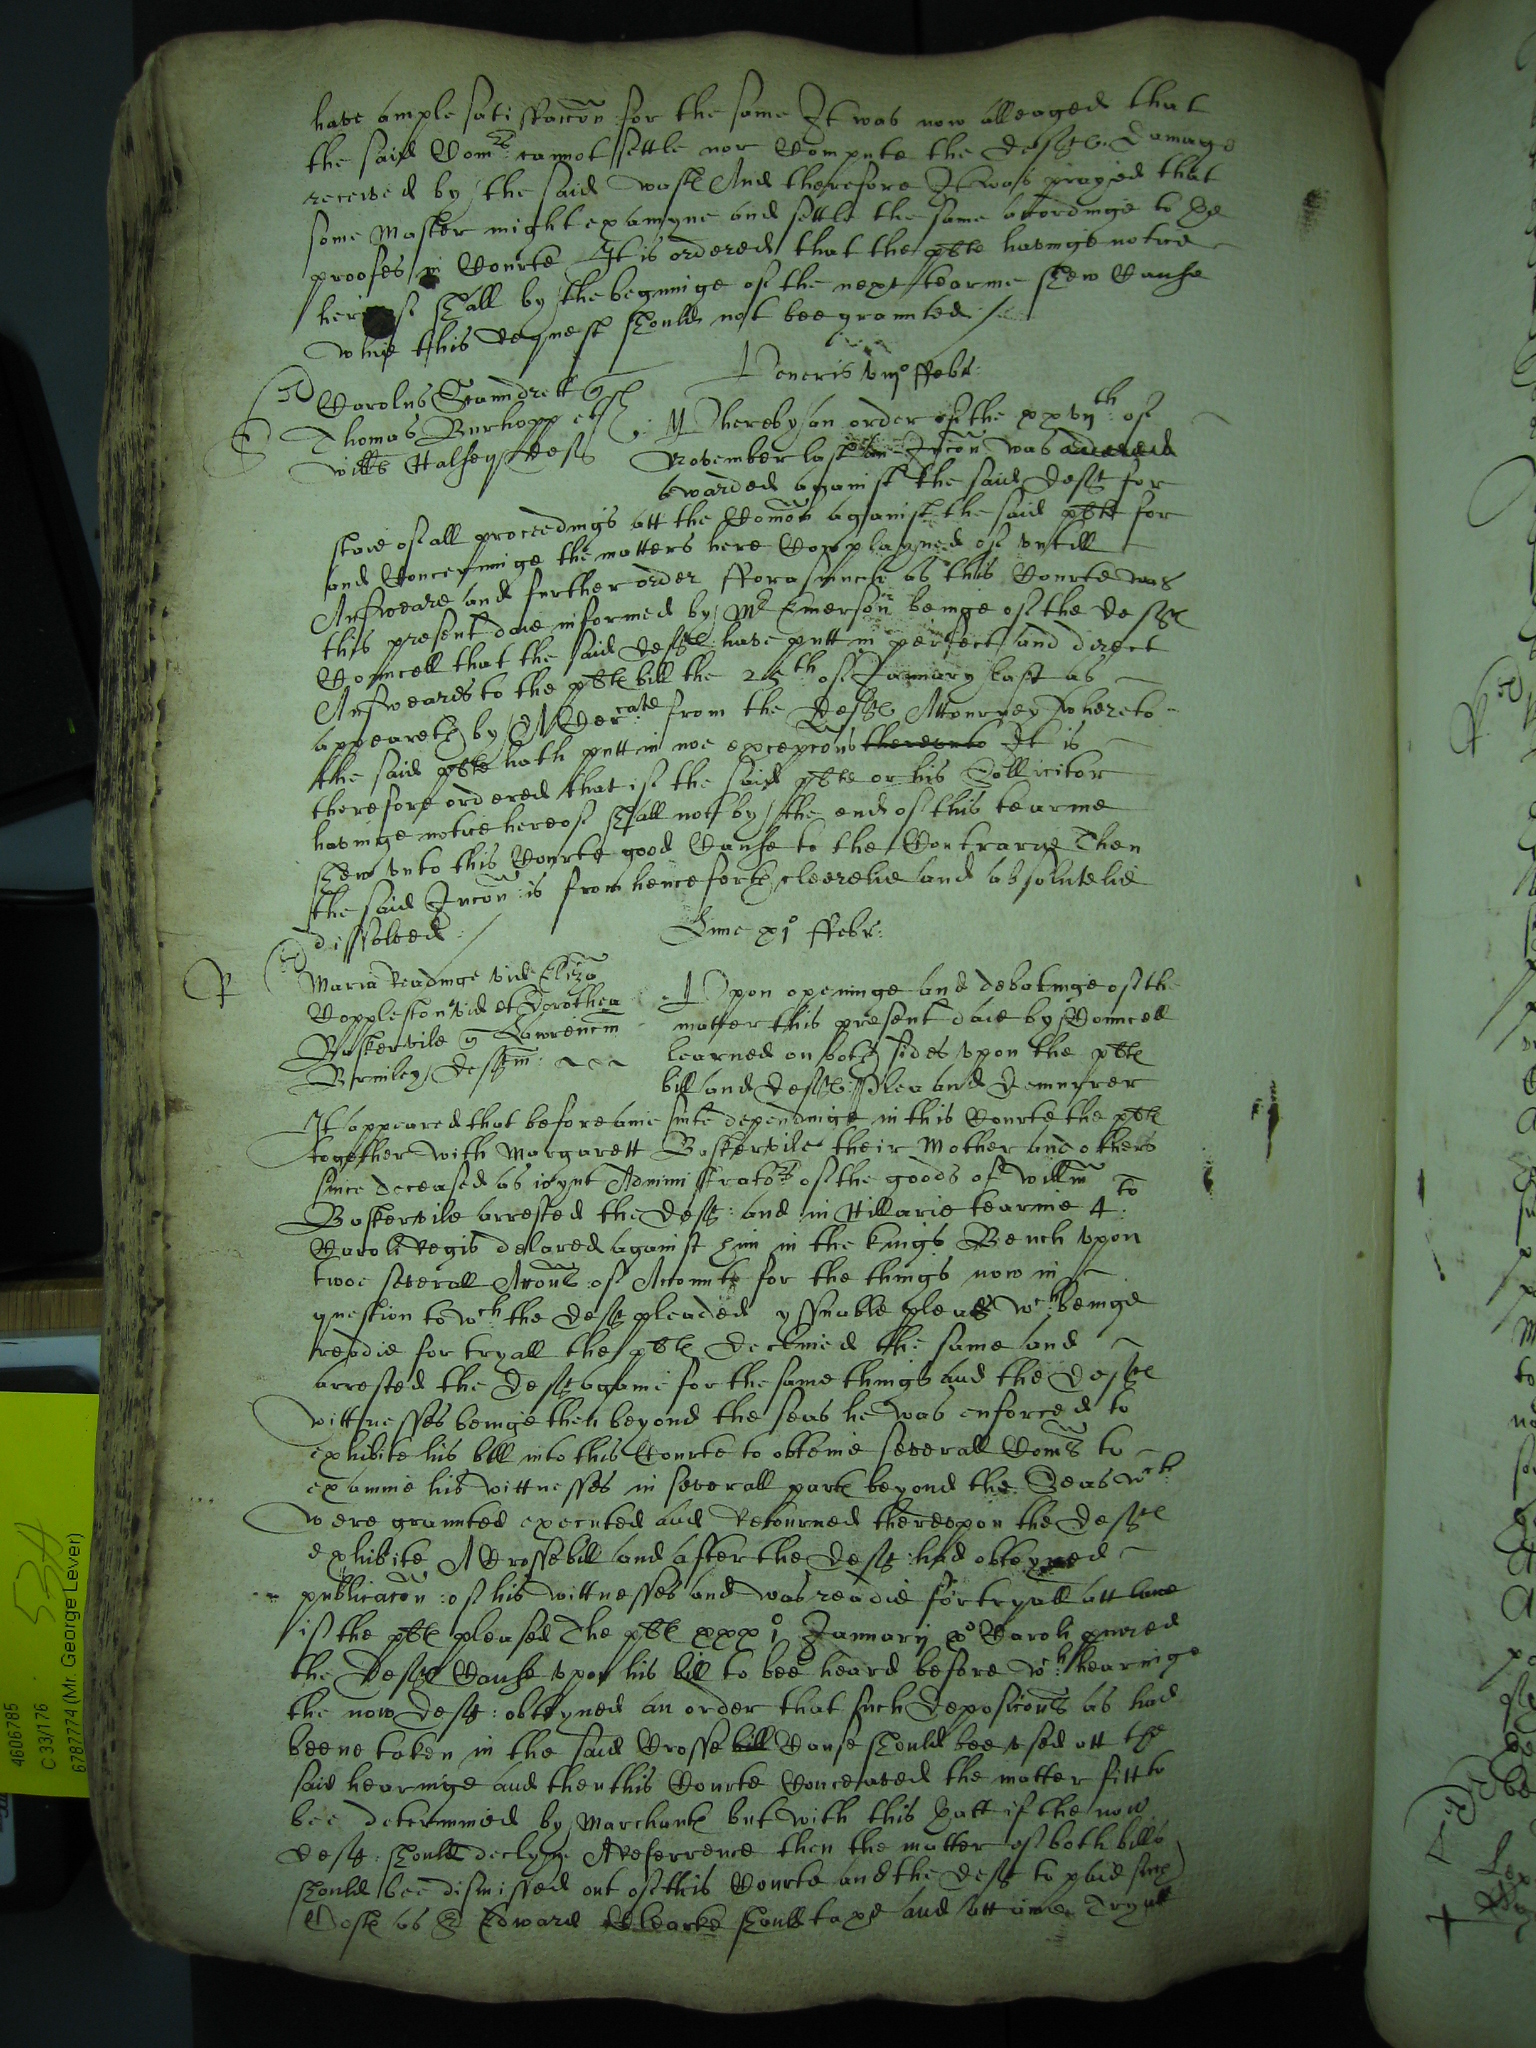 have ample satisfaccon for the same It was now alleaged that
the said Comrs cannot settle nor Compute the defts Damage
received by the said wast And therefore It was prayed that
some Master might examyne and settle the same accordinge to the
proofes in Courte It is ordered that the plte havinge notice
hereof shall by the beginninge of the next tearme shew Cause
whie this request should not bee graunted /
Veneris viijo ffebr:
Carolus
Thomas Burhopp et
Willm Halsey defts
Whereby an order of the xxviith of
November last an Iniuccon was
awarded against the said defts for
staie of all proceedings att the Comon against the said plte for
and Concerninge the matters here Complayned of untill
Answeare and further order fforasmuch as this Courte was
this present daie informed by Mr Emerson beinge of the defts
Councell that the said defts have putt in perfect and direct
Answeares to the plts bill the 25th of January last as
appeareth by Certificate from the defts Attourney whereto
the said plte hath putt in noe excepcons thereunto It is
therefore ordered that if the said plte or his Sollicitor
havinge notice hereof shall not by the end of this tearme
shew unto this Courte good Cause to the Contrarie Then
the said Iniuccon is from henceforth cleerelie and absolutelie
dissolved /
Lune xio ffebr:
Maria Readinge vid Eliza
Coppleston vid et Dorothea
Baskervile q Lawrencm
Brinley deftm
Upon openinge and debatinge of the
matter this present daie by Councell
learned on both sides upon the plts
bill and defts Plea and Demurrer
It appeared that before anie suite dependinge in this Courte the plts
together with Margarett Baskervile their Mother and others
since deceased as ioynt Administrators of the goods of Willm
Baskervile arrested the deft: and in Hillarie tearme 4to
Caroli Regis delared against him in the kings Bench upon
twoe severall Accons of Accounte for the things now in
question to wch the deft pleaded yssuable pleas wch beinge
readie for tryall the plts declined the same and
arrested the deft againe for the same things and the defts
wittnesses beinge then beyond the seas he was enforced to
exhibite his bill into this Courte to obteine severall Comns to
examine his wittnesses in severall parts beyond the Seas wch
were graunted executed and Retourned thereupon the defts
exhibite A Crosse bill and after the deft: had obteyned
publicacon: of his wittnesses and was readie for tryall att lawe
if the plts pleased The plts xxxio January xo Caroli procured
the defts Cause upon his bill to bee heard before wch hearinge
the now deft: obteyned an order that such deposicons as had
beene taken in the said Crosse bill Cause should bee used att the
said hearinge and then this Courte Conceaved the matter fitt to
bee determined by Marchants but with this that if the now
deft: should declyne A Referrence then the matter of both bills
should bee dismissed out of this Courte and the deft to paid such
Costs as Sr Edward Clearke should taxe and att anie Tryall
4606785
C 33/176
6787774 (Mr. George Lever)
534